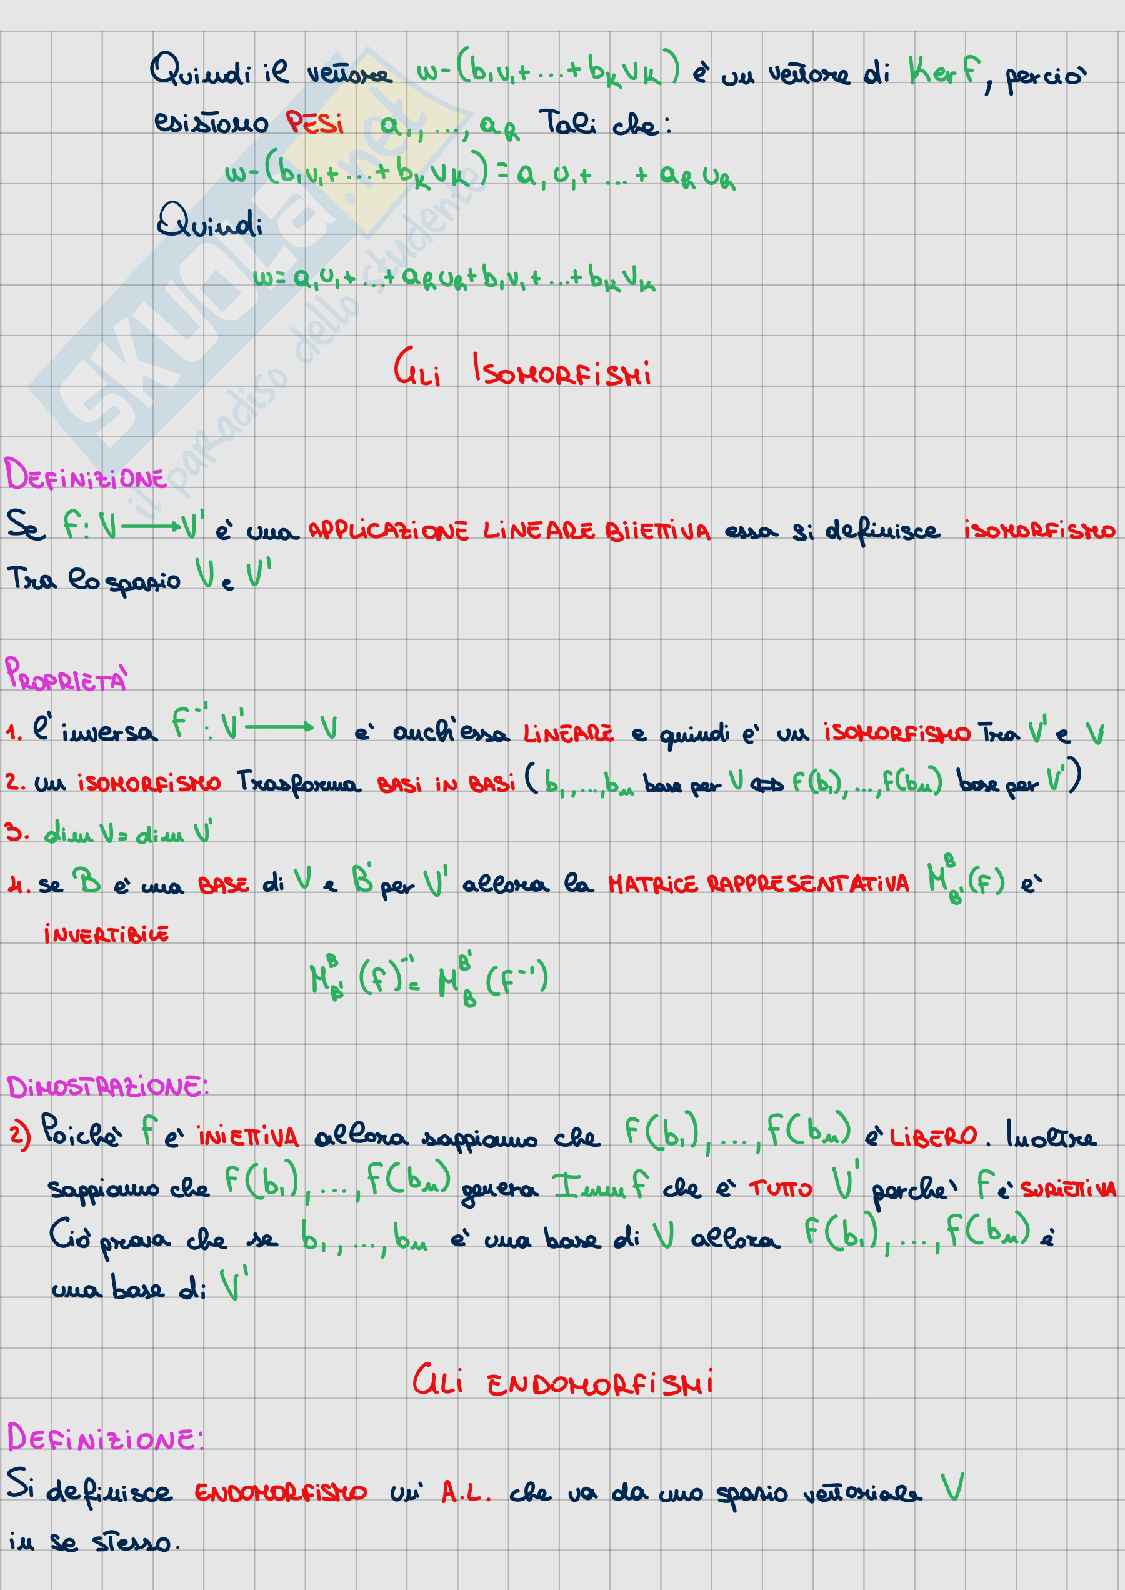 Quindi il vettore w-(b₁v₁+...+bₖvₖ) è un vettore di Kerf, perciò
esistono PESi a₁,...,aᵣ Tali che:
w-(b₁v₁+...+bₖvₖ)=a₁u₁+...+aᵣuᵣ
Quindi
w=a₁u₁+...+aᵣuᵣ+b₁v₁+...+bₖvₖ
GLi ISOMORFISMi
DEFiNiZiONE
Se f: V⟶V' è una APPLICAZIONE LINEARE BIIETTIVA essa si definisce iSOMORFISMO
Tra lo spazio V e V'
PROPRIETÀ
1. l'inversa f⁻¹: V'⟶V è anch'essa LiNEARE e quindi è un iSOMORFISMO Tra V' e V
2. un iSOMORFISMO Trasforma BASI IN BASI (b₁,...,bₙ base per V ⇔ f(b₁),...,f(bₙ) base per V')
3. dim V = dim V'
4. se B è una BASE di V e B' per V' allora la MATRICE RAPPRESENTATIVA M^B_B'(f) è
iNVERTIBILE
M^B_B'(f)⁻¹ = M^B'_B(f⁻¹)
DiMOSTRAZiONE:
2) Poichè f è iNiETTIVA allora sappiamo che f(b₁),...,f(bₙ) è LiBERO. Inoltre
sappiamo che f(b₁),...,f(bₙ) genera Immf che è TUTTO V' perchè f è SURIETTIVA
Ciò prova che se b₁,...,bₙ è una base di V allora f(b₁),...,f(bₙ) è
una base di V'
GLi ENDOMORFISMi
DEFiNiZiONE:
Si definisce ENDOMORFISMO un' A.L. che va da uno spazio vettoriale V
in se stesso.
SKUOLA.net
il paradiso dello studente